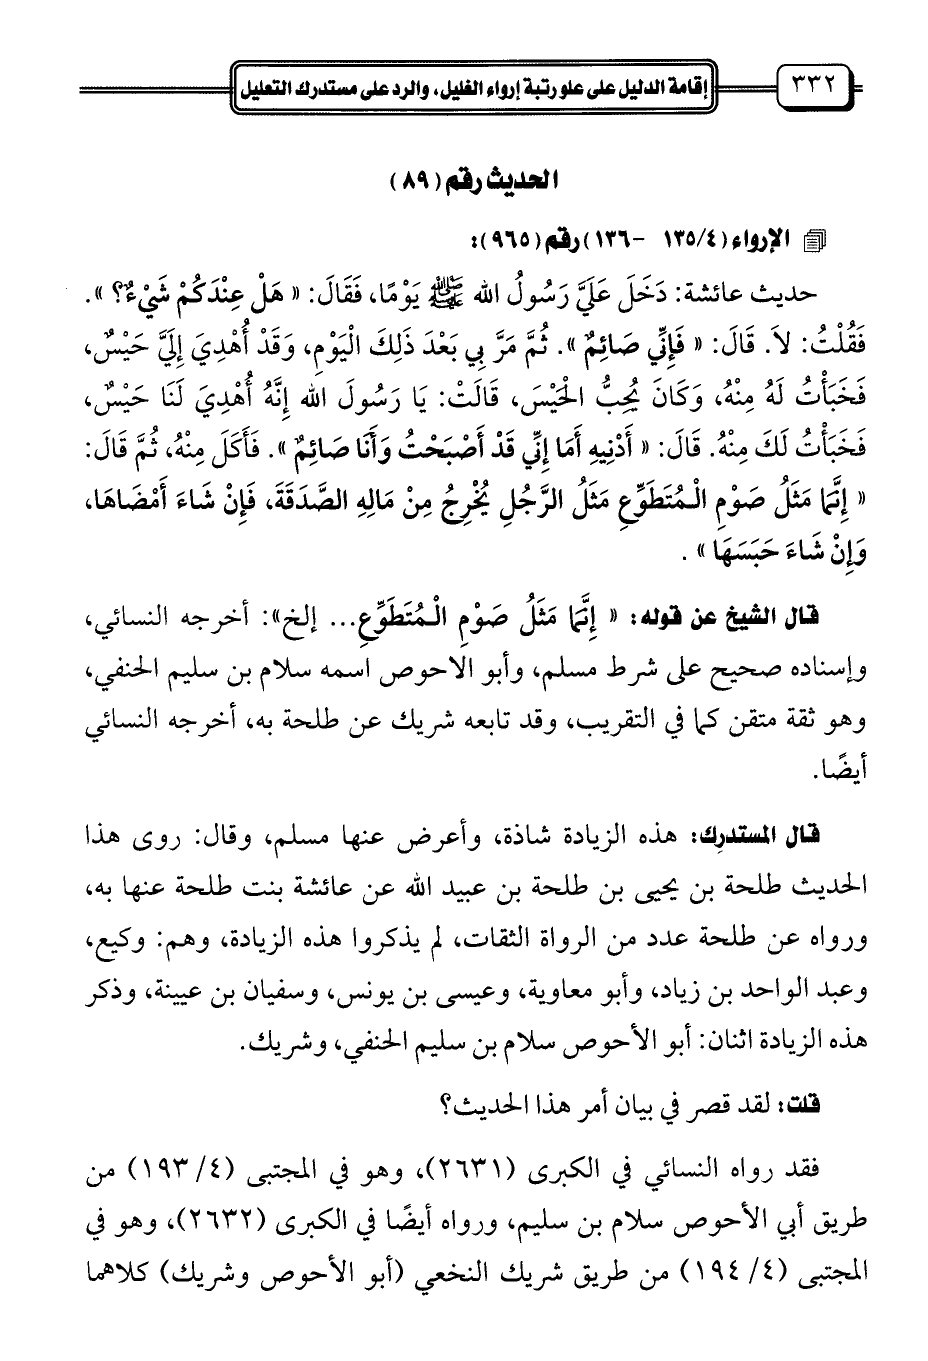 ٣٣٢
إقامة الدليل على علو رتبة إرواء الغليل، والرد على مستدرك التعليل
الحديث رقم (٨٩)
الإرواء (١٣٥/٤ - ١٣٦) رقم (٩٦٥):
حديث عائشة: دَخَلَ عَلَيَّ رَسُولُ الله ﷺ يَوْمًا، فَقَالَ: « هَلْ عِنْدَكُمْ شَيْءٌ؟ ».
فَقُلْتُ: لاَ. قَالَ: « فَإِنِّي صَائِمٌ ». ثُمَّ مَرَّ بِي بَعْدَ ذَلِكَ الْيَوْمِ، وَقَدْ أُهْدِيَ إِلَيَّ حَيْسٌ،
فَخَبَأْتُ لَهُ مِنْهُ، وَكَانَ يُحِبُّ الْحَيْسَ، قَالَتْ: يَا رَسُولَ الله إِنَّهُ أُهْدِيَ لَنَا حَيْسٌ،
فَخَبَأْتُ لَكَ مِنْهُ. قَالَ: « أَدْنِيهِ أَمَا إِنِّي قَدْ أَصْبَحْتُ وَأَنَا صَائِمٌ ». فَأَكَلَ مِنْهُ، ثُمَّ قَالَ:
« إِنَّمَا مَثَلُ صَوْمِ الْمُتَطَوِّعِ مَثَلُ الرَّجُلِ يُخْرِجُ مِنْ مَالِهِ الصَّدَقَةَ، فَإِنْ شَاءَ أَمْضَاهَا،
وَإِنْ شَاءَ حَبَسَهَا » .
قال الشيخ عن قوله: « إِنَّمَا مَثَلُ صَوْمِ الْمُتَطَوِّعِ... إلخ»: أخرجه النسائي،
وإسناده صحيح على شرط مسلم، وأبو الاحوص اسمه سلام بن سليم الحنفي،
وهو ثقة متقن كما في التقريب، وقد تابعه شريك عن طلحة به، أخرجه النسائي
أيضًا.
قال المستدرِك: هذه الزيادة شاذة، وأعرض عنها مسلم، وقال: روى هذا
الحديث طلحة بن يحيى بن طلحة بن عبيد الله عن عائشة بنت طلحة عنها به،
ورواه عن طلحة عدد من الرواة الثقات، لم يذكروا هذه الزيادة، وهم: وكيع،
وعبد الواحد بن زياد، وأبو معاوية، وعيسى بن يونس، وسفيان بن عيينة، وذكر
هذه الزيادة اثنان: أبو الأحوص سلام بن سليم الحنفي، وشريك.
قلت: لقد قصر في بيان أمر هذا الحديث؟
فقد رواه النسائي في الكبرى (٢٦٣١)، وهو في المجتبى (٤/ ١٩٣) من
طريق أبي الأحوص سلام بن سليم، ورواه أيضًا في الكبرى (٢٦٣٢)، وهو في
المجتبى (٤/ ١٩٤) من طريق شريك النخعي (أبو الأحوص وشريك) كلاهما